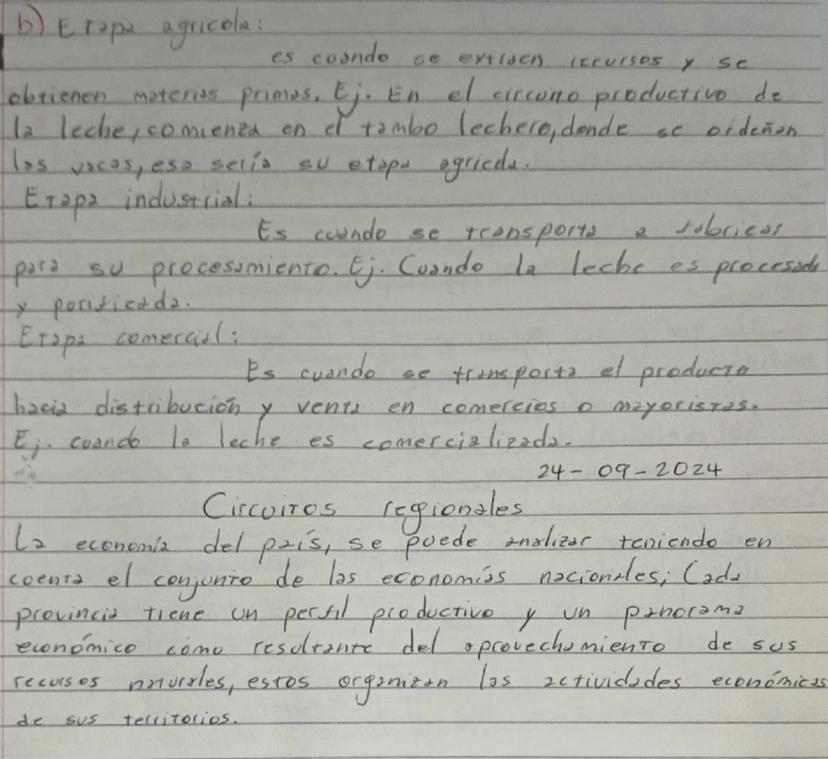 b) Etapa agricola:
es cuando se extraen recursos y se
obtienen materias primas. Ej. En el circuito productivo de
la leche, comienza en el tambo lechero, donde se ordeñan
las vacas, esa sería su etapa agricola.
Etapa industrial:
Es cuando se transporta a fabricas
para su procesamiento. Ej. Cuando la leche es procesada
y purificada.
Etapa comercial:
Es cuando se transporta el producto
hacia distribución y venta en comercios o mayoristas.
Ej. cuando la leche es comercializada.
24-09-2024
Circuitos regionales
La economía del país, se puede analizar teniendo en
cuenta el conjunto de las economías nacionales; Cada
provincia tiene un perfil productivo y un panorama
económico como resultante del aprovechamiento de sus
recursos naturales, estos organizan las actividades económicas
de sus territorios.